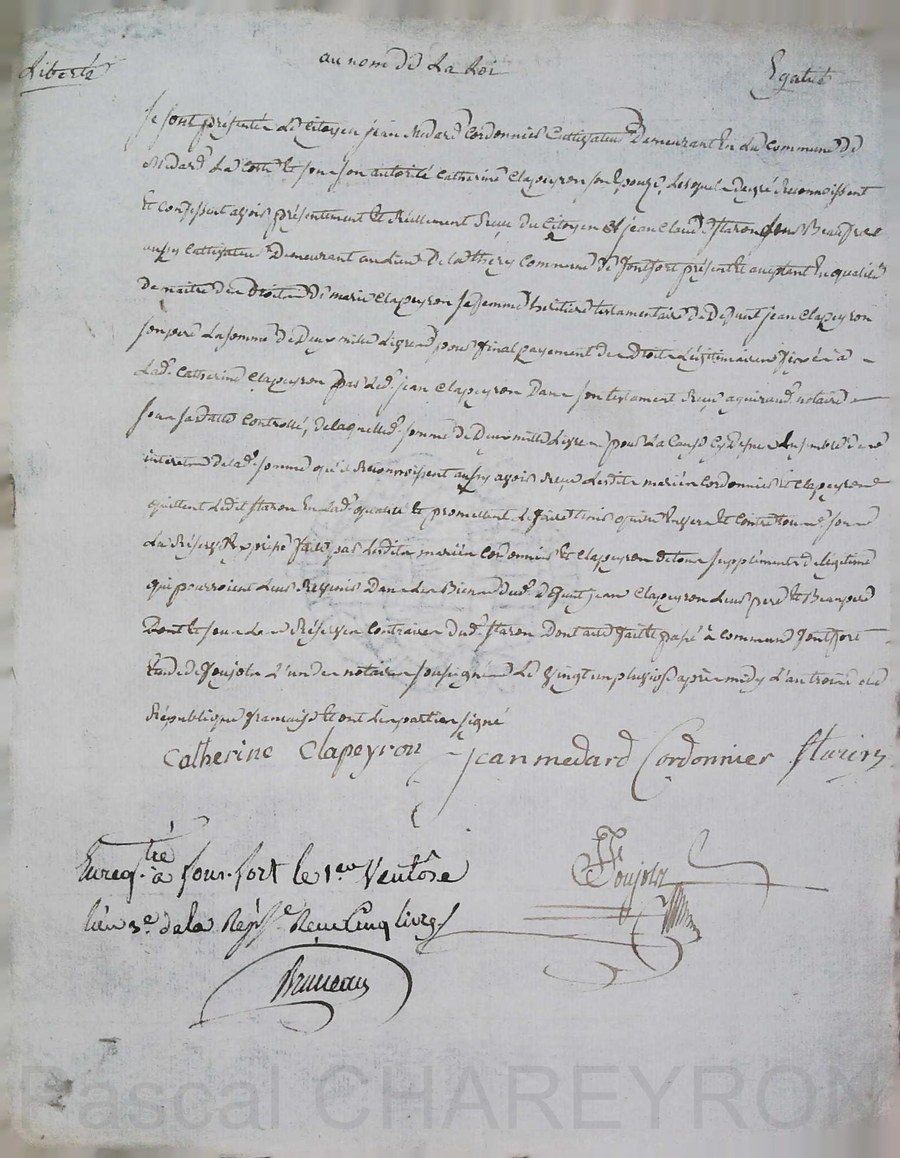 Liberté au nom de La Loi Egalité
Se sont présentés Le Citoyen jean Medard Cordonnier Cultivateur Demeurant En La Commune De
Medard La Cotte Et sous son autorité Catherine Clapeyron son Epouze, Lesquels De gré Reconnoissent
Et Confessent avoir présentement Et Réellement Reçu du Citoyen jean Claude Staron Leur Beaufrere
aussy Cultivateur Demeurant au Lieu De la Commune De fontfort présent Et aceptant En qualité
De maitre des Droits De marie Clapeyron sa femme héritiere testamentaire De Defunt jean Clapeyron
son pere La somme De Deux mille Livres pour final payement des Droits Légitimaires fixés a
Lad. Catherine Clapeyron par Led. jean Clapeyron Dans son testament Reçu notaire
sous sa datte Controllé, De laquelle somme De Deux mille Livres pour La Cause Ensemble des
interets De lad. somme qu'ils Reconnoissent aussy avoir Reçu Lesdits mariés Cordonnier Et Clapeyron
quittent Ledit Staron En lad. qualité Et promettent Le faire tenir quitte Envers Et Contre tous sous
La Réserve Expresse faite par Lesdits mariés Cordonnier Et Clapeyron De tous suppléments De légitime
qui pourroient Leur Revenir Dans Les Biens Dud. Defunt jean Clapeyron Leur pere Et Beaupere
Dont Et sous Les Réserves Contraires Dud. Staron Dont acte fait Et passé à Commune fontfort
Etude De foujols L'un des notaires soussignés Le vingt un pluviose après midy L'an trois De La
République française Et ont Les parties signé
Catherine Clapeyron Jean medard Cordonnier Staron
Enregtré à fonfort le 1er Ventôse
l'an 3e. de la Repe. Reçu Cinq livres
Foujols
Bruneau
Pascal CHAREYRON